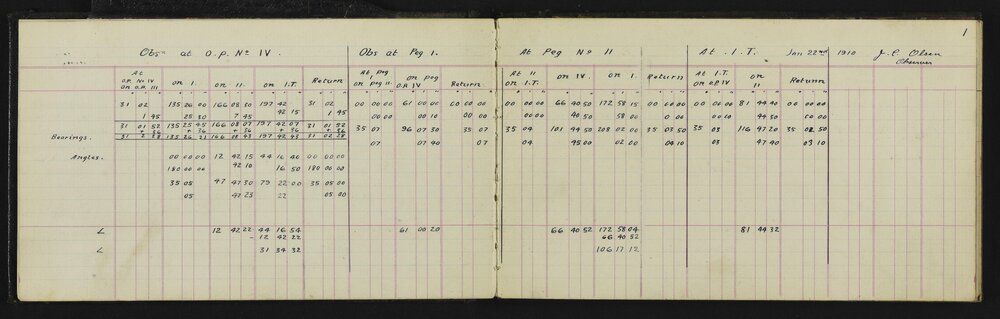 1
Obsⁿ at O.P. Nº IV.
Obs at Peg 1.
At Peg Nº II
At I.T. Jan 22nd 1910 J. C. Olsen
Observer
At O.P. Nº IV on O.P. III | on I. | on II. | on I.T. | Return | At Peg I on peg II | on peg O.P. IV | Return | At II on I.T. | on IV. | on I. | Return | At I.T. on O.P. IV | on II | Return
31 02 | 135 26 00 | 166 08 30 | 197 42 | 31 02 | 00 00 00 | 61 00 00 | 00 00 00 | 00 00 00 | 66 40 50 | 172 58 15 | 00 00 00 | 00 00 00 | 81 44 40 | 00 00 00
1 45 | 25 30 | 7 45 | 42 15 | 1 45 | 00 00 | 00 10 | 00 00 | 00 00 | 40 50 | 58 00 | 0 00 | 00 00 | 44 30 | 00 00
31 01 52 | 135 25 45 | 166 08 07 | 197 42 07 | 31 01 52 | 35 07 | 96 07 30 | 35 07 | 35 04 | 101 44 50 | 208 02 00 | 35 03 50 | 35 03 | 116 47 20 | 35 02 50
+ 36 | + 36 | + 36 | + 36 | + 36
Bearings. 31 2 28 | 135 26 21 | 166 08 43 | 197 42 43 | 31 02 28 | 07 | 07 40 | 07 | 04 | 45 00 | 02 00 | 04 10 | 03 | 47 40 | 03 10
Angles. 00 00 00 | 12 42 15 | 44 16 40 | 00 00 00
180 00 00 | 42 10 | 16 50 | 180 00 00
35 05 | 47 47 30 | 79 22 00 | 35 05 00
05 | 47 25 | 22 | 05 00
∠ 12 42 22 | 44 16 54 | 61 00 20 | 66 40 52 | 172 58 04 | 81 44 32
- 12 42 22 | 66 40 52
∠ 31 34 32 | 106 17 12